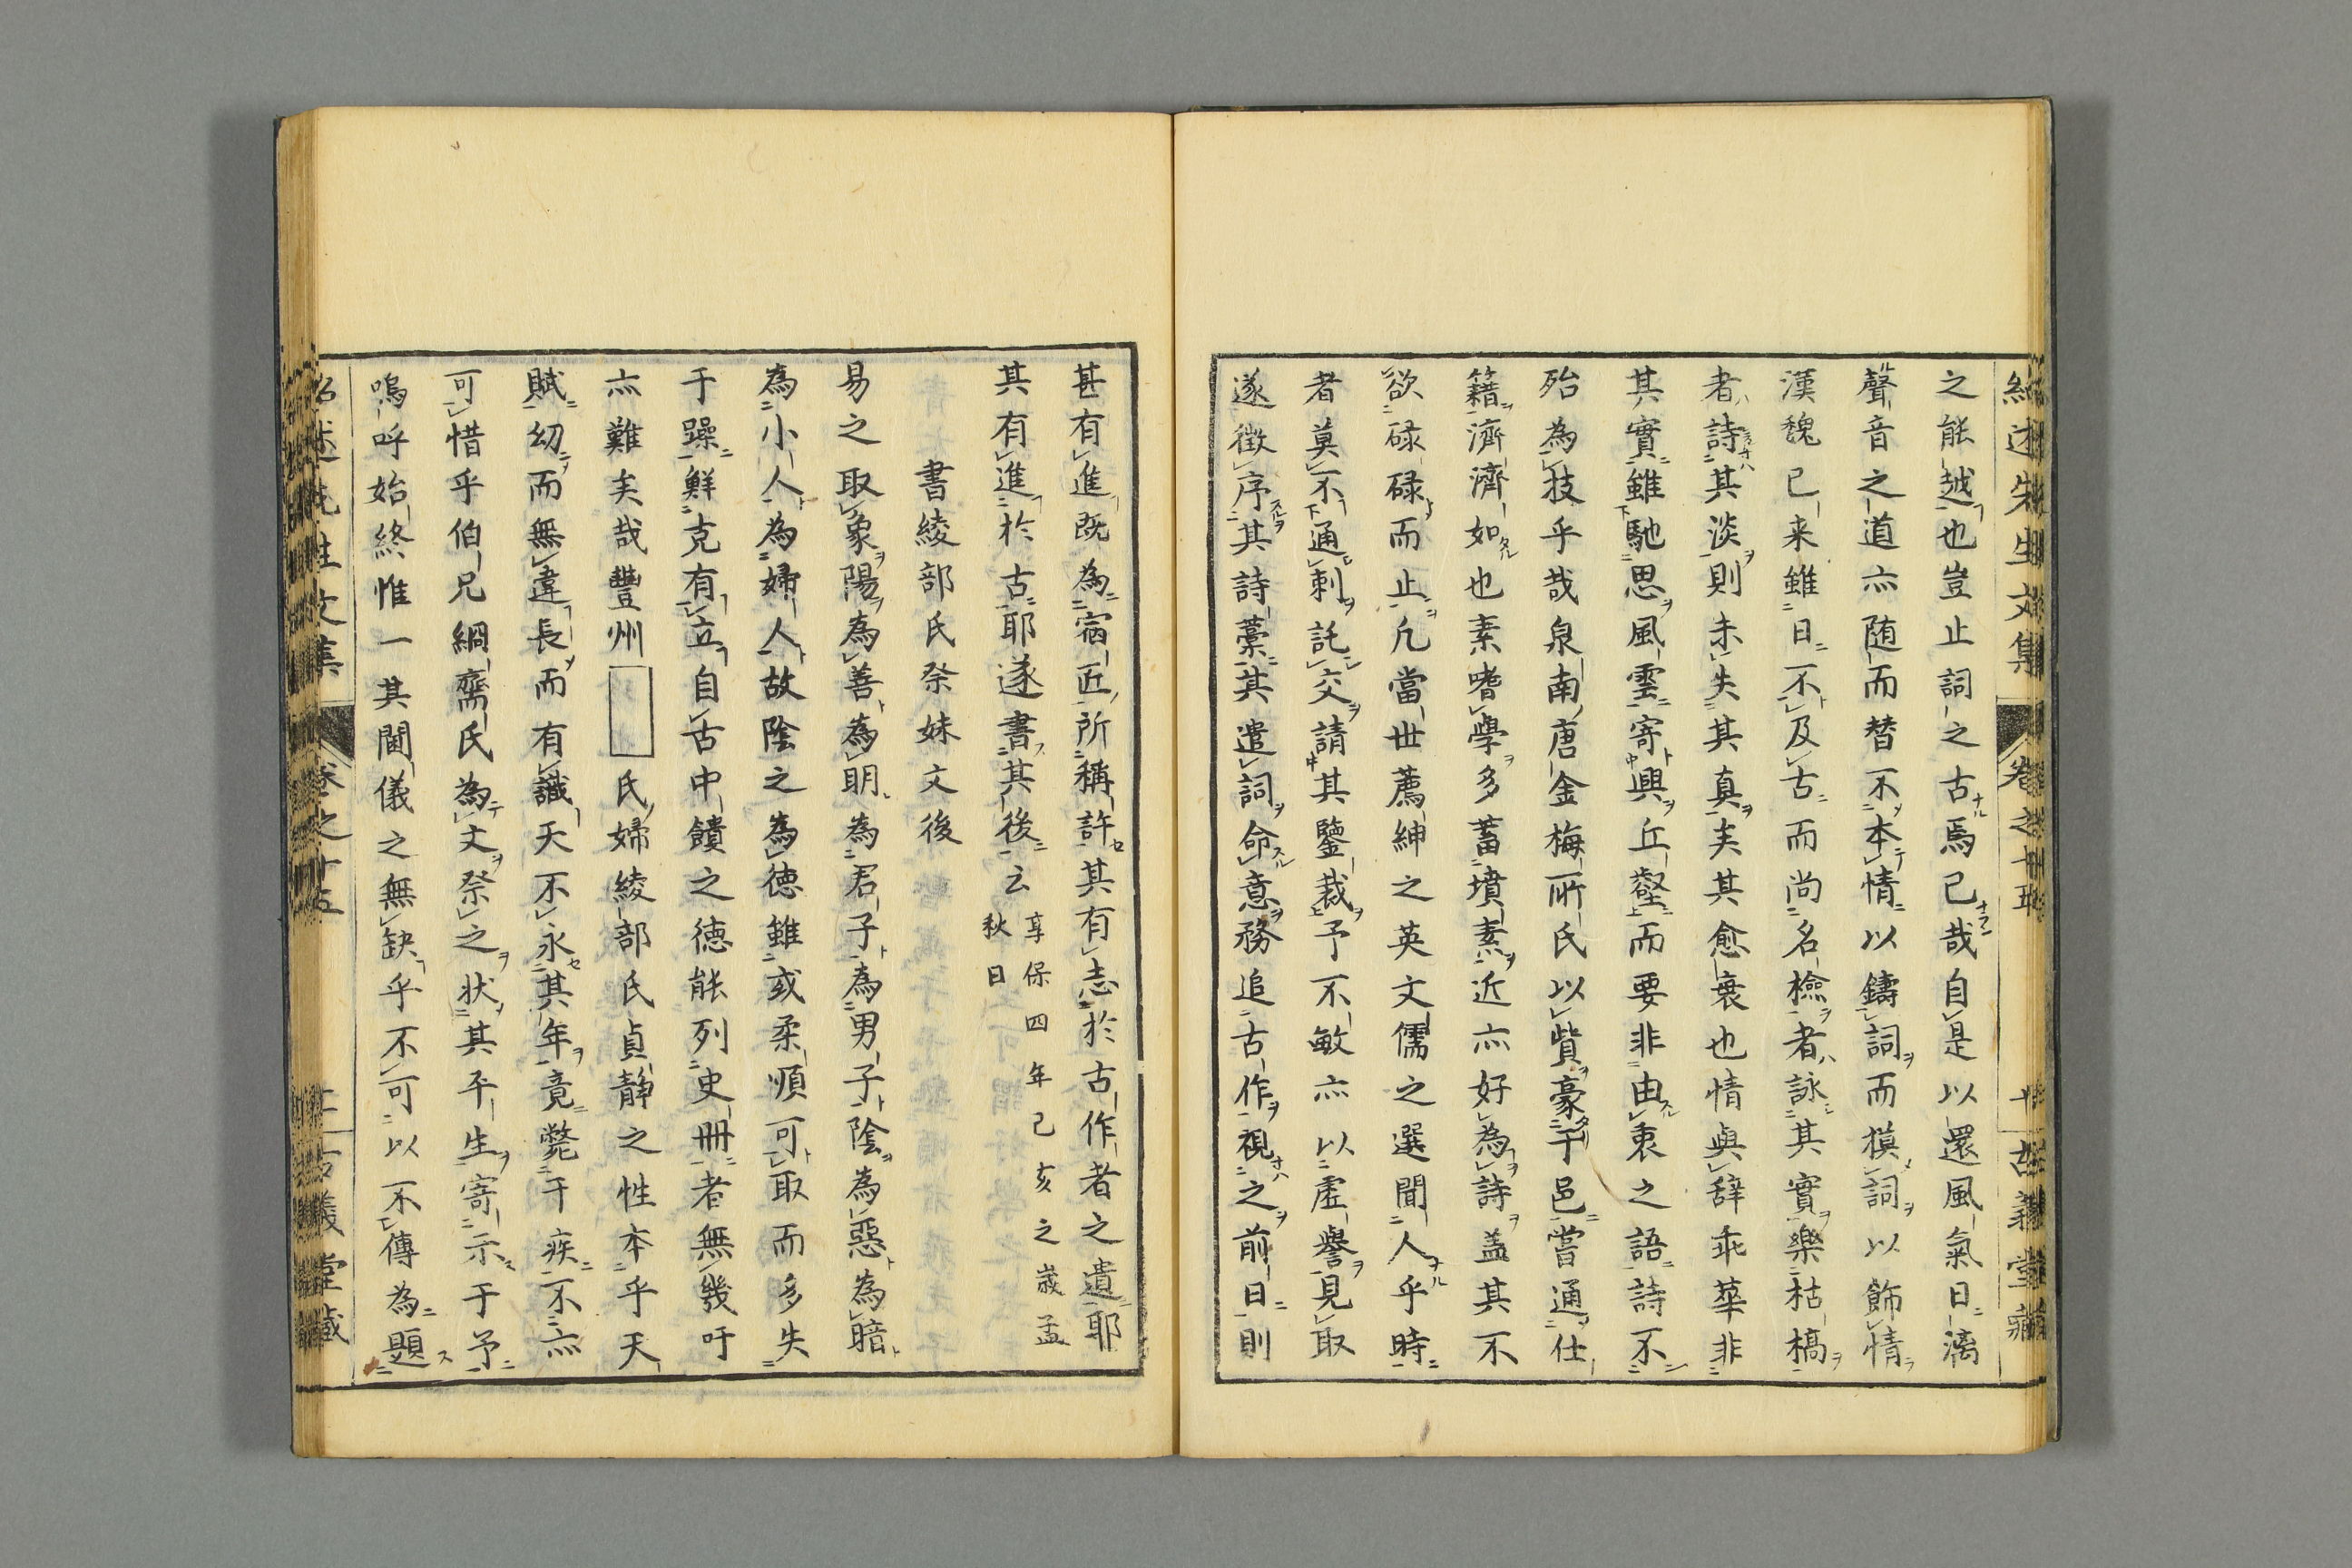 紹述先生文集 卷之十五 古義堂藏
之能越也豈止詞之古焉已哉自是以還風氣日漓
聲音之道亦随而替不本情以鑄詞而摸詞以飾情
漢魏已来雖曰不及古而尚名檢者詠其實樂枯槁
者詩其淡則未失其真矣其愈衰也情與辞乖華非
其實雖馳思風雲寄興丘壑而要非由衷之語詩不
殆為技乎哉泉南唐金梅所氏以貲豪于邑嘗通仕
籍濟濟如也素嗜學多蓄墳素近亦好為詩盖其不
欲碌碌而止凢當世薦紳之英文儒之選聞人乎時
者莫不通刺託交請其鑒裁予不敏亦以虛譽見取
遂徴序其詩藁其遣詞命意務追古作視之前日則
甚有進既為宿匠所稱許其有志於古作者之遺耶
其有進於古耶遂書其後云 享保四年己亥之歳孟
秋日
書綾部氏祭妹文後
易之取象陽為善為明為君子為男子陰為惡為暗
為小人為婦人故陰之為徳雖或柔順可取而多失
于躁鮮克有立自古中饋之徳能列史冊者無幾吁
亦難矣哉豐州 氏婦綾部氏貞靜之性本乎天
賦幼而無違長而有識天不永其年竟斃于疾不亦
可惜乎伯兄絅齋氏為文祭之状其平生寄示于予
嗚呼始終惟一其閫儀之無缺乎不可以不傳為題
紹述先生文集 卷之十五 古義堂藏